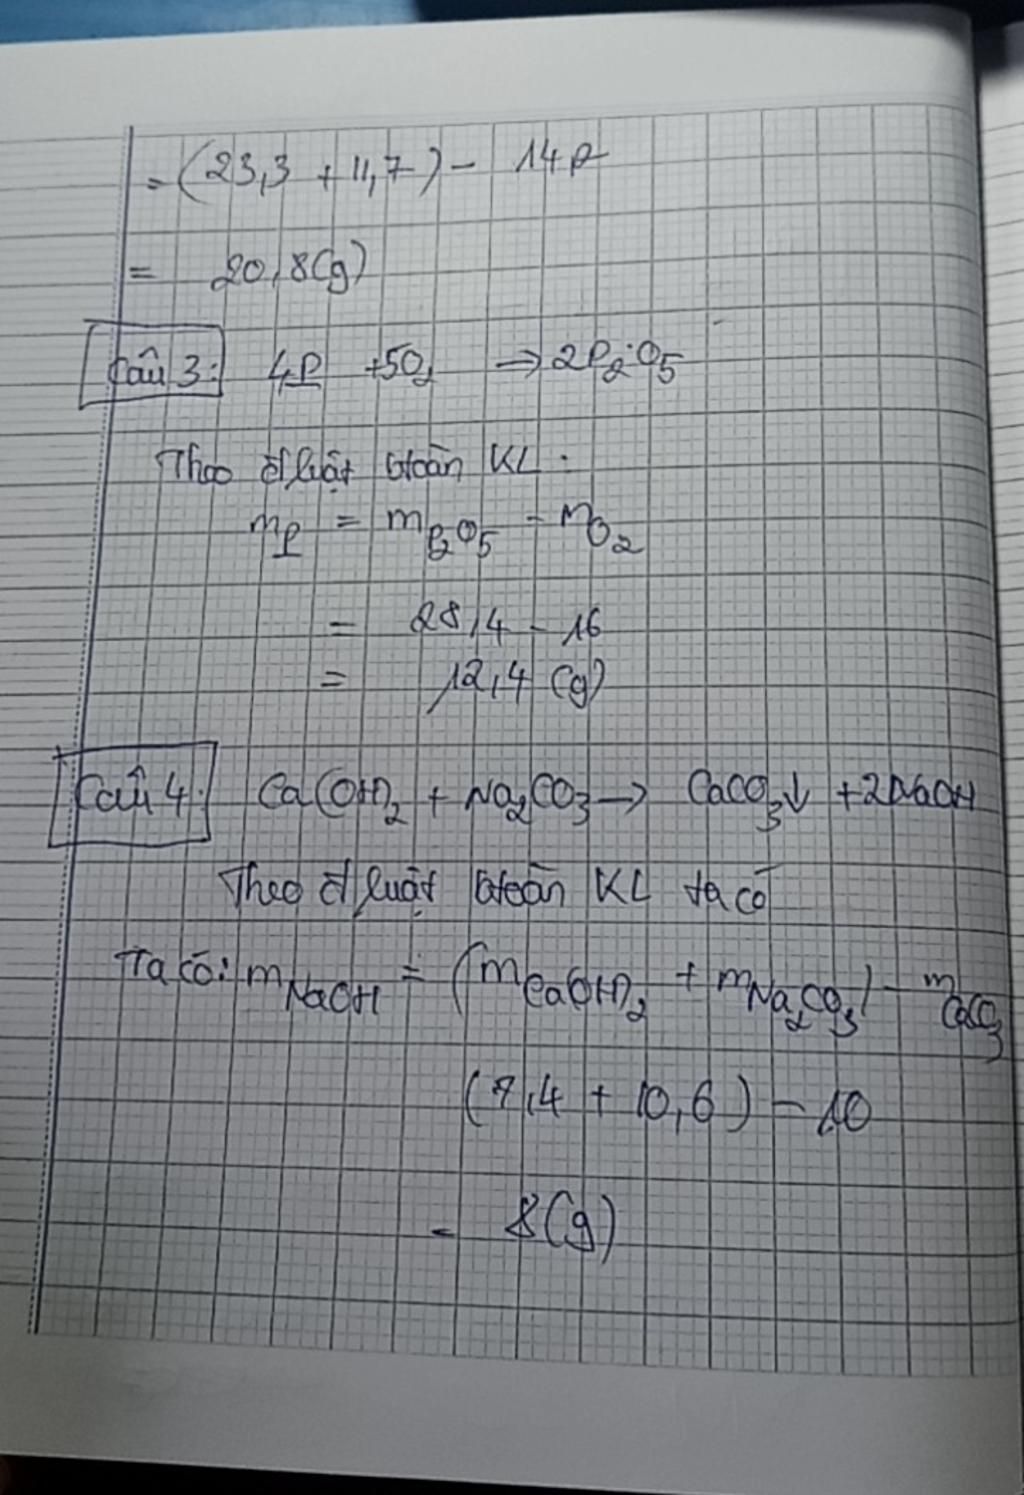 = (23,3 + 11,7) - 14,2
= 20,8(g)
Câu 3: 4P + 5O2 → 2P2O5
Theo đ luật btoàn KL.
mP = mP2O5 - mO2
= 28,4 - 16
= 12,4 (g)
Câu 4: Ca(OH)2 + Na2CO3 → CaCO3↓ + 2NaOH
Theo đ luật btoàn KL ta có
Ta có: mNaOH = (mCa(OH)2 + mNa2CO3) - mCaCO3
(7,4 + 10,6) - 10
= 8(g)